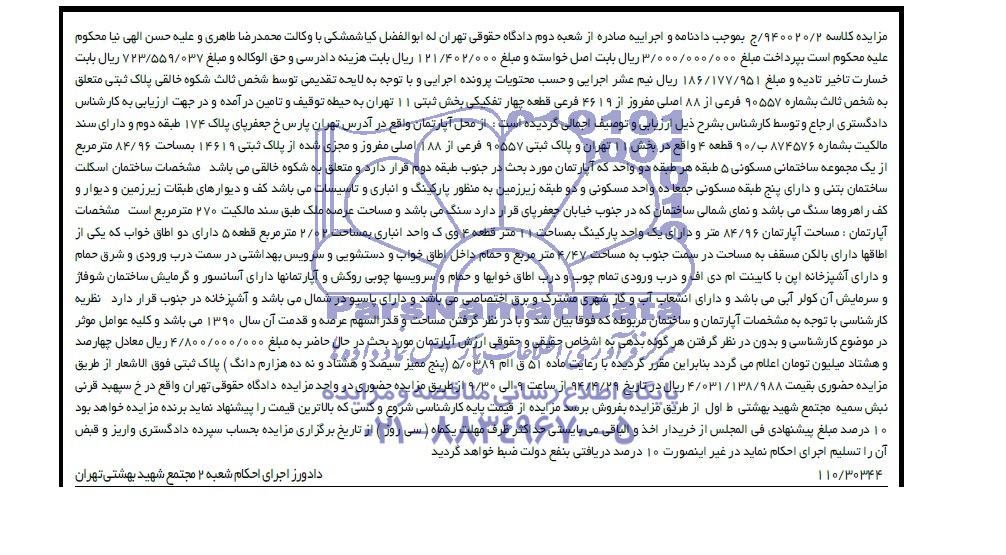 مزایده کلاسه ۹۴۰۰۲۰/۲/ج بموجب دادنامه و اجراییه صادره از شعبه دوم دادگاه حقوقی تهران له ابوالفضل کیاشمشکی با وکالت محمدرضا طاهری و علیه حسن الهی نیا محکوم
علیه محکوم است بپرداخت مبلغ ۳/۰۰۰/۰۰۰/۰۰۰ ریال بابت اصل خواسته و مبلغ ۱۲۱/۴۰۲/۰۰۰ ریال بابت هزینه دادرسی و حق الوکاله و مبلغ ۷۲۳/۵۵۹/۰۳۷ ریال بابت
خسارت تاخیر تادیه و مبلغ ۱۸۶/۱۷۷/۹۵۱ ریال نیم عشر اجرایی و حسب محتویات پرونده اجرایی و با توجه به لایحه تقدیمی توسط شخص ثالث شکوه خالقی پلاک ثبتی متعلق
به شخص ثالث بشماره ۹۰۵۵۷ فرعی از ۸۸ اصلی مفروز از ۴۶۱۹ فرعی قطعه چهار تفکیکی بخش ثبتی ۱۱ تهران به حیطه توقیف و تامین در آمده و در جهت ارزیابی به کارشناس
دادگستری ارجاع و توسط کارشناس بشرح ذیل ارزیابی و توصیف اجمالی گردیده است : از محل آپارتمان واقع در آدرس تهران پارس خ جعفرپای پلاک ۱۷۴ طبقه دوم و دارای سند
مالکیت بشماره ۸۷۴۵۷۶ ب/۹۰ قطعه ۴ واقع در بخش ۱۱ تهران و پلاک ثبتی ۹۰۵۵۷ فرعی از ۱۸۸ اصلی مفروز و مجزی شده از پلاک ثبتی ۱۴۶۱۹ بمساحت ۸۴/۹۶ مترمربع
از یک مجموعه ساختمانی مسکونی ۵ طبقه هر طبقه دو واحد که آپارتمان مورد بحث در جنوب طبقه دوم قرار دارد و متعلق به شکوه خالقی می باشد مشخصات ساختمان اسکلت
ساختمان بتنی و دارای پنج طبقه مسکونی جمعا ده واحد مسکونی و دو طبقه زیرزمین به منظور پارکینگ و انباری و تاسیسات می باشد کف و دیوارهای طبقات زیرزمین و دیوار و
کف راهروها سنگ می باشد و نمای شمالی ساختمان که در جنوب خیابان جعفرپای قرار دارد سنگ می باشد و مساحت عرصه ملک طبق سند مالکیت ۲۷۰ مترمربع است مشخصات
آپارتمان : مساحت آپارتمان ۸۴/۹۶ متر و دارای یک واحد پارکینگ بمساحت ۱۱ متر قطعه ۴ وی ک واحد انباری بمساحت ۲/۰۲ مترمربع قطعه ۵ دارای دو اطاق خواب که یکی از
اطاقها دارای بالکن مسقف به مساحت در سمت جنوب به مساحت ۴/۴۷ متر مربع و حمام داخل اطاق خواب و دستشویی و سرویس بهداشتی در سمت درب ورودی و شرق حمام
و دارای آشپزخانه اپن با کابینت ام دی اف و درب ورودی تمام چوب و درب اطاق خوابها و حمام و سرویسها چوبی روکش و آپارتمانها دارای آسانسور و گرمایش ساختمان شوفاژ
و سرمایش آن کولر آبی می باشد و دارای انشعاب آب و گاز شهری مشترک و برق اختصاصی می باشد و دارای پاسیو در شمال می باشد و آشپزخانه در جنوب قرار دارد نظریه
کارشناسی با توجه به مشخصات آپارتمان و ساختمان مربوطه که فوقا بیان شد و با در نظر گرفتن مساحت و قدرالسهم عرصه و قدمت آن سال ۱۳۹۰ می باشد و کلیه عوامل موثر
در موضوع کارشناسی و بدون در نظر گرفتن هر گونه بدهی به اشخاص حقیقی و حقوقی ارزش آپارتمان مورد بحث در حال حاضر به مبلغ ۴/۸۰۰/۰۰۰/۰۰۰ ریال معادل چهارصد
و هشتاد میلیون تومان اعلام می گردد بنابراین مقرر گردیده با رعایت ماده ۵۱ ق اام ۵/۰۳۸۹ (پنج ممیز سیصد و هشتاد و نه ده هزارم دانگ) پلاک ثبتی فوق الاشعار از طریق
مزایده حضوری بقیمت ۴/۰۳۱/۱۳۸/۹۸۸ ریال در تاریخ ۹۴/۴/۲۹ از ساعت ۹ الی ۹/۳۰ از طریق مزایده حضوری در واحد مزایده دادگاه حقوقی تهران واقع در خ سپهبد قرنی
نبش سمیه مجتمع شهید بهشتی ط اول از طریق مزایده بفروش برسد مزایده از قیمت پایه کارشناسی شروع و کسی که بالاترین قیمت را پیشنهاد نماید برنده مزایده خواهد بود
۱۰ درصد مبلغ پیشنهادی فی المجلس از خریدار اخذ و الباقی می بایستی حداکثر ظرف مهلت یکماه ( سی روز ) از تاریخ برگزاری مزایده بحساب سپرده دادگستری واریز و قبض
آن را تسلیم اجرای احکام نماید در غیر اینصورت ۱۰ درصد دریافتی بنفع دولت ضبط خواهد گردید
۱۱۰/۳۰۳۴۴ دادورز اجرای احکام شعبه ۲ مجتمع شهید بهشتی تهران
ParsNamadData
مرکز فرآوری اطلاعات پارس نماد داده ها
پایگاه اطلاع رسانی مناقصه و مزایده
۰۲۱-۸۸۳۴۹۶۷۰-۵